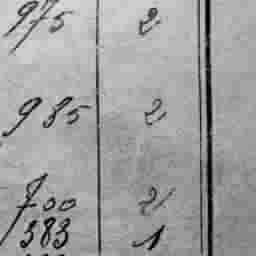 975 2
985 2
700 2
383 1